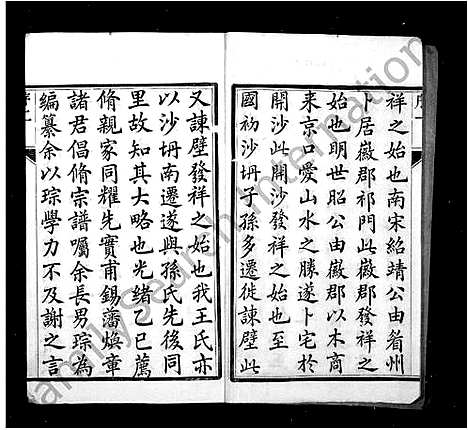 祥之始也南宋紹靖公由睂州
卜居徽郡祁門此徽郡發祥之
始也明世昭公由徽郡以木商
来京口愛山水之勝遂卜宅於
開沙此開沙發祥之始也至
國初沙坍子孫多遷徙諫壁此
又諫壁發祥之始也我王氏亦
以沙坍南遷遂與孫氏先後同
里故知其大略也光緒乙巳薦
脩親家同耀先實甫錫藩煥章
諸君倡脩宗譜囑余長男琮為
編纂余以琮學力不及謝之言
FamilySearch International